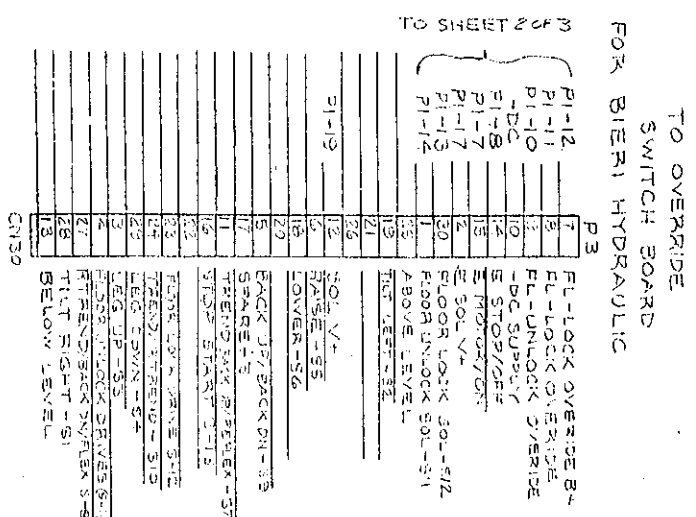 TO OVERRIDE
SWITCH BOARD
FOR BIERI HYDRAULIC
TO SHEET 2 OF 3
P3
P1-12 7 FL-LOCK OVERIDE B+
P1-11 8 FL-LOCK OVERIDE
P1-10 FL-UNLOCK OVERIDE
-DC 10 -DC SUPPLY
P1-8 14 E STOP/OFF
P1-7 15 E MOTOR/ON
P1-17 2 E SOL V+
P1-13 30 FLOOR LOCK SOL-S12
P1-14 1 FLOOR UNLOCK SOL-S11
25 ABOVE LEVEL
19 TILT LEFT-S2
21
26
P1-19 12 SOL V+
6 RAISE-S5
18 LOWER-S6
20
5 BACK UP/BACK DN-S9
17 SPARE-3
TREND/BACK UP/REFLEX-S7
16 STOP START
22
23 FLOOR LOCK DRIVE S-12
TREND/RTREND-S10
LEG DOWN-S4
3 LEG UP-S3
4 FLOOR UNLOCK DRIVE
27 RTREND/BACK DN/FLEX S-8
28 TILT RIGHT-S1
13 BELOW LEVEL
CN30